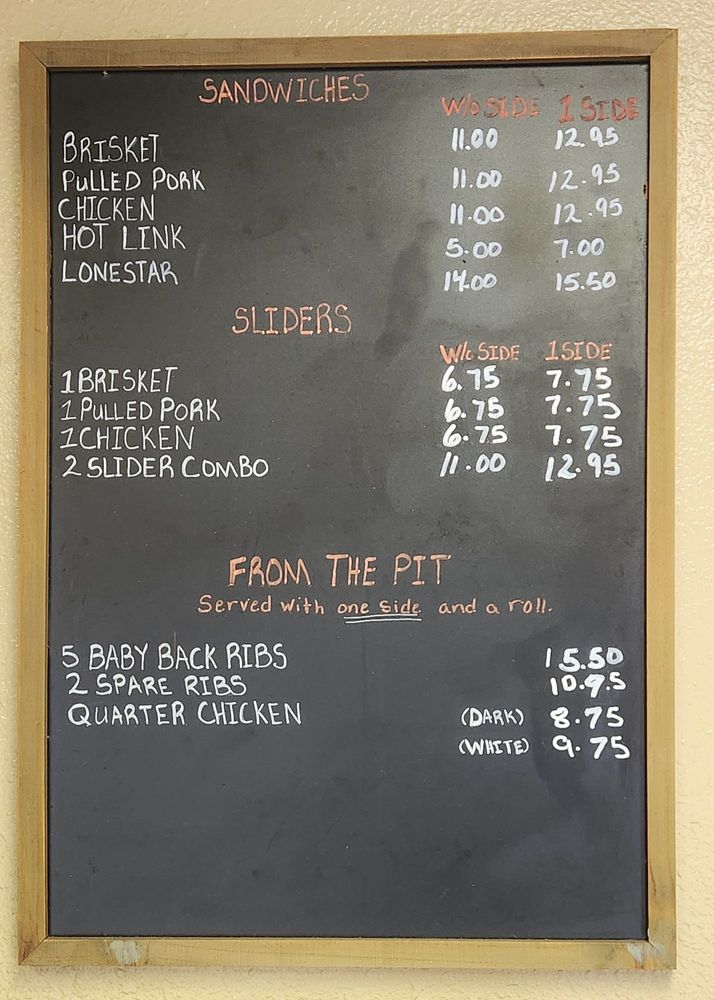 SANDWICHES
W/o SIDE 1 SIDE
BRISKET 11.00 12.95
PULLED PORK 11.00 12.95
CHICKEN 11.00 12.95
HOT LINK 5.00 7.00
LONESTAR 14.00 15.50
SLIDERS
W/o SIDE 1 SIDE
1 BRISKET 6.75 7.75
1 PULLED PORK 6.75 7.75
1 CHICKEN 6.75 7.75
2 SLIDER COMBO 11.00 12.95
FROM THE PIT
Served with one side and a roll.
5 BABY BACK RIBS 15.50
2 SPARE RIBS 10.95
QUARTER CHICKEN (DARK) 8.75
(WHITE) 9.75